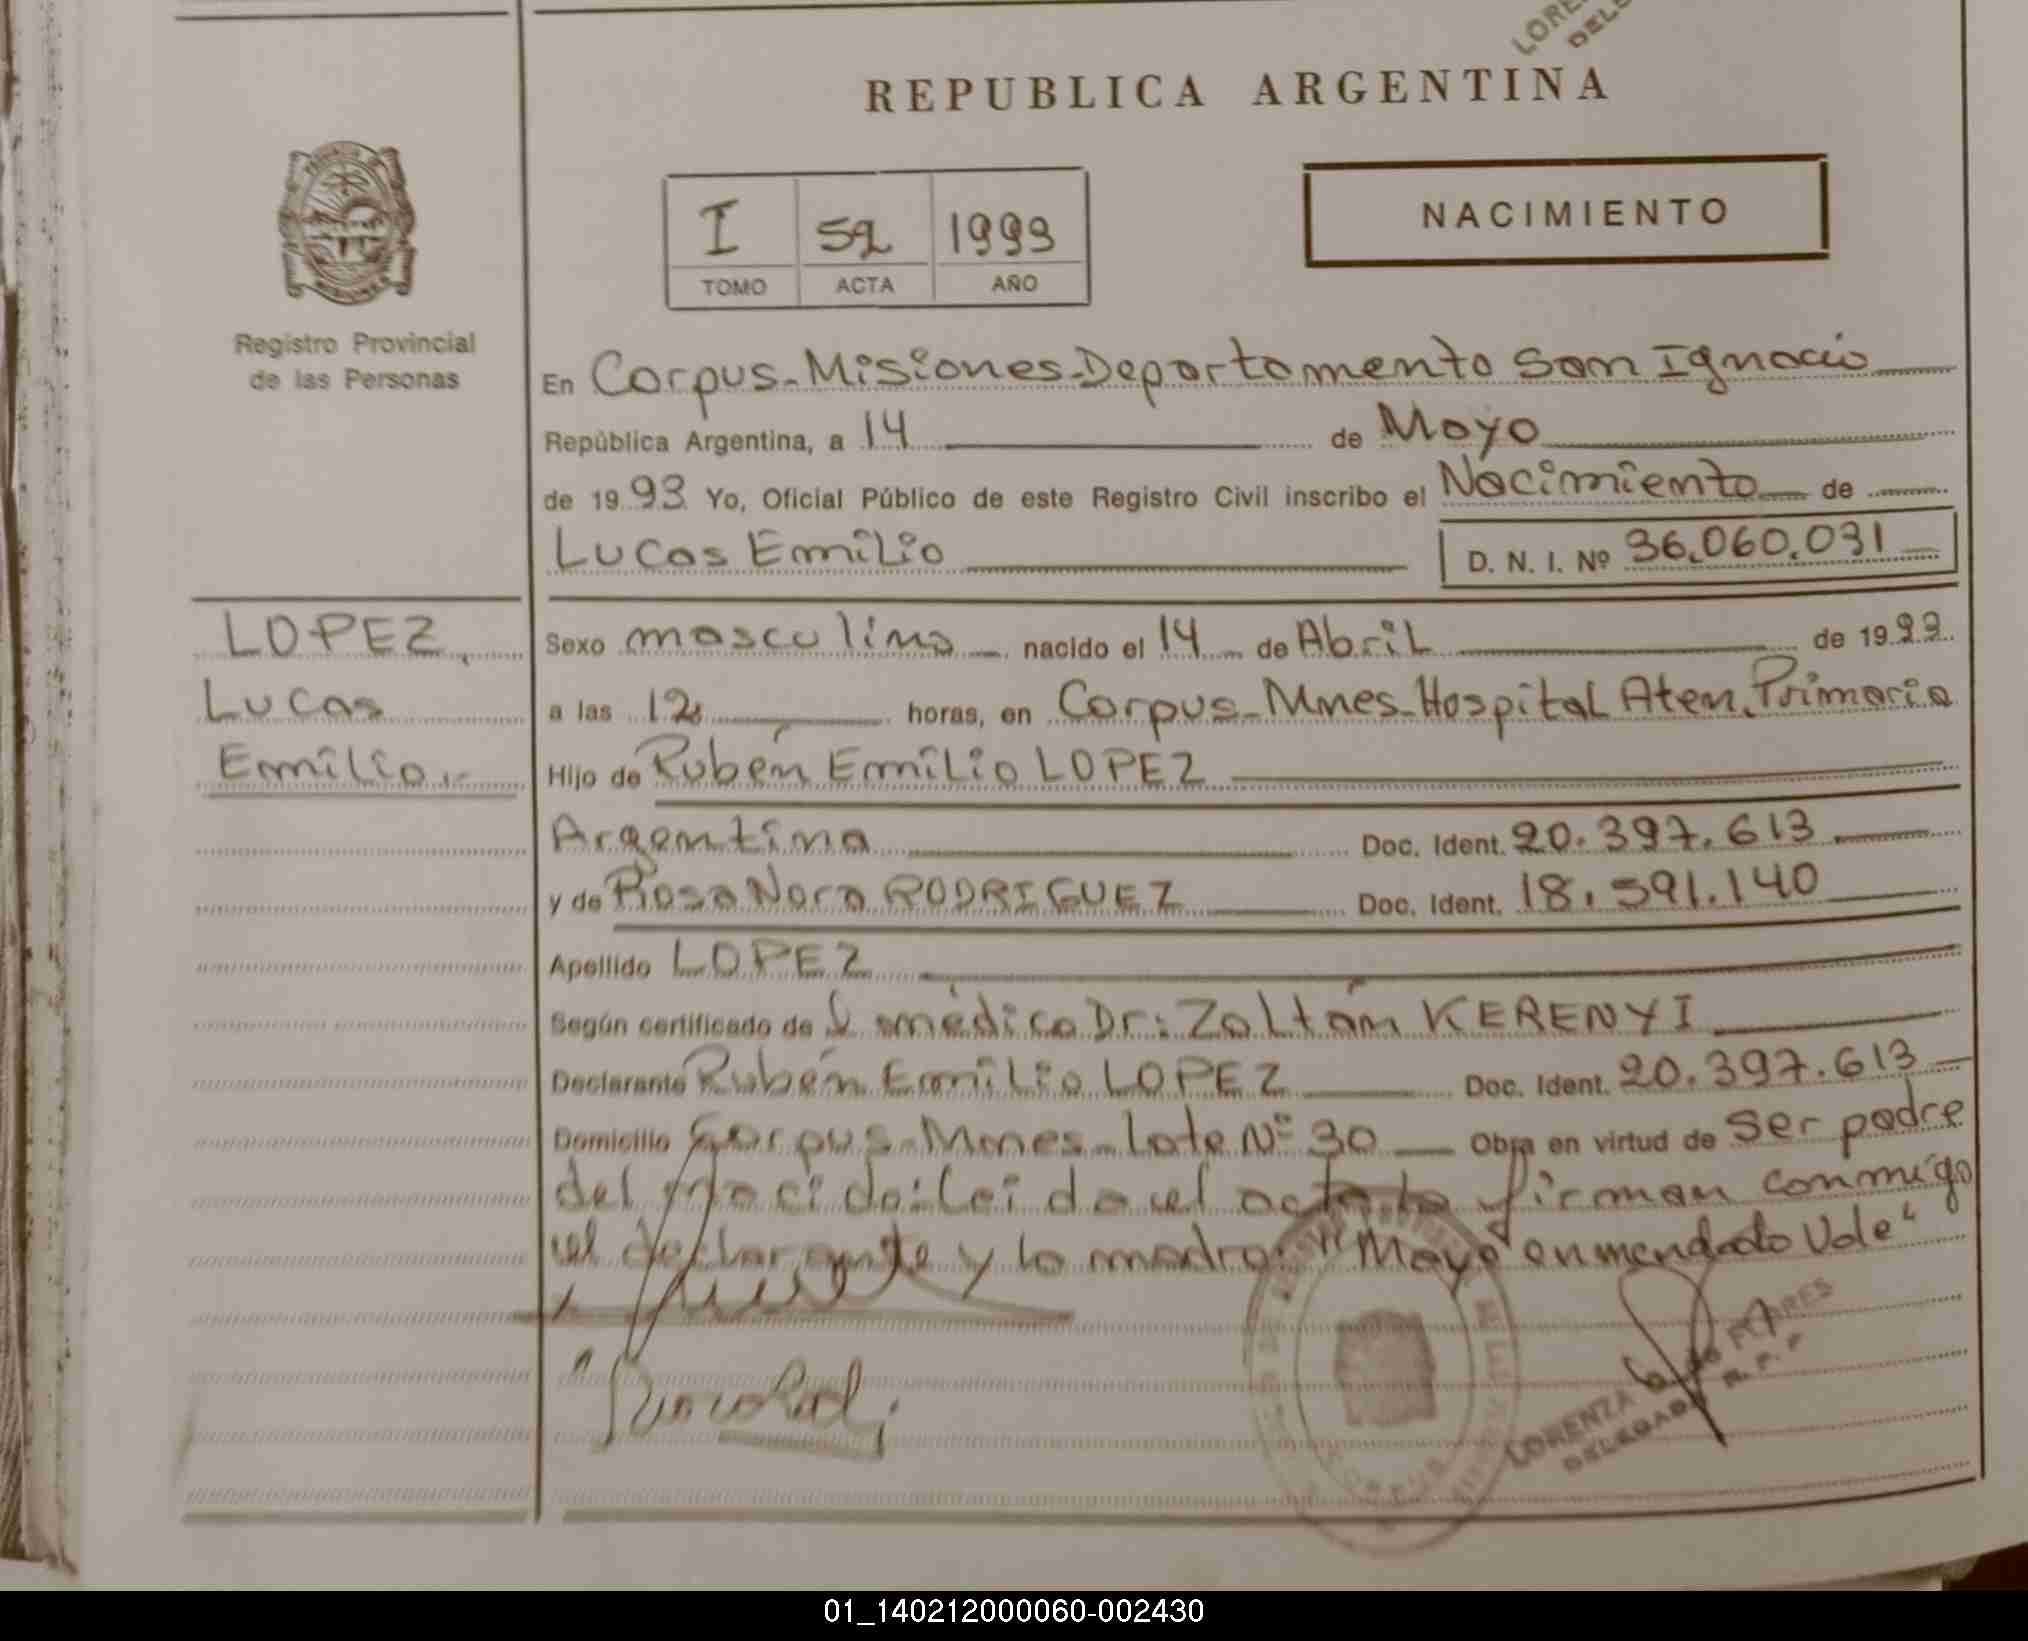 REPUBLICA ARGENTINA
I 52 1993
TOMO ACTA AÑO
NACIMIENTO
Registro Provincial
de las Personas
En Corpus-Misiones-Departamento San Ignacio
República Argentina, a 14 de Mayo
de 1993 Yo, Oficial Público de este Registro Civil inscribo el Nacimiento de
Lucas Emilio D. N. I. Nº 36.060.031
LOPEZ,
Lucas
Emilio.-
Sexo masculino nacido el 14 de Abril de 1993
a las 12 horas, en Corpus-Mnes-Hospital Aten. Primaria
Hijo de Rubén Emilio LOPEZ
Argentina Doc. Ident. 20.397.613
y de Rosa Nora RODRIGUEZ Doc. Ident. 18.591.140
Apellido LOPEZ
Según certificado de l médico Dr: Zoltán KERENYI
Declarante Rubén Emilio LOPEZ Doc. Ident. 20.397.613
Domicilio Corpus-Mnes-Lote Nº 30 Obra en virtud de ser padre
del nacido: Leida el acta la firman conmigo
el declarante y la madre: "Mayo enmendado Vale"
LORENZA
DELEGADA
CORPUS
01_140212000060-002430